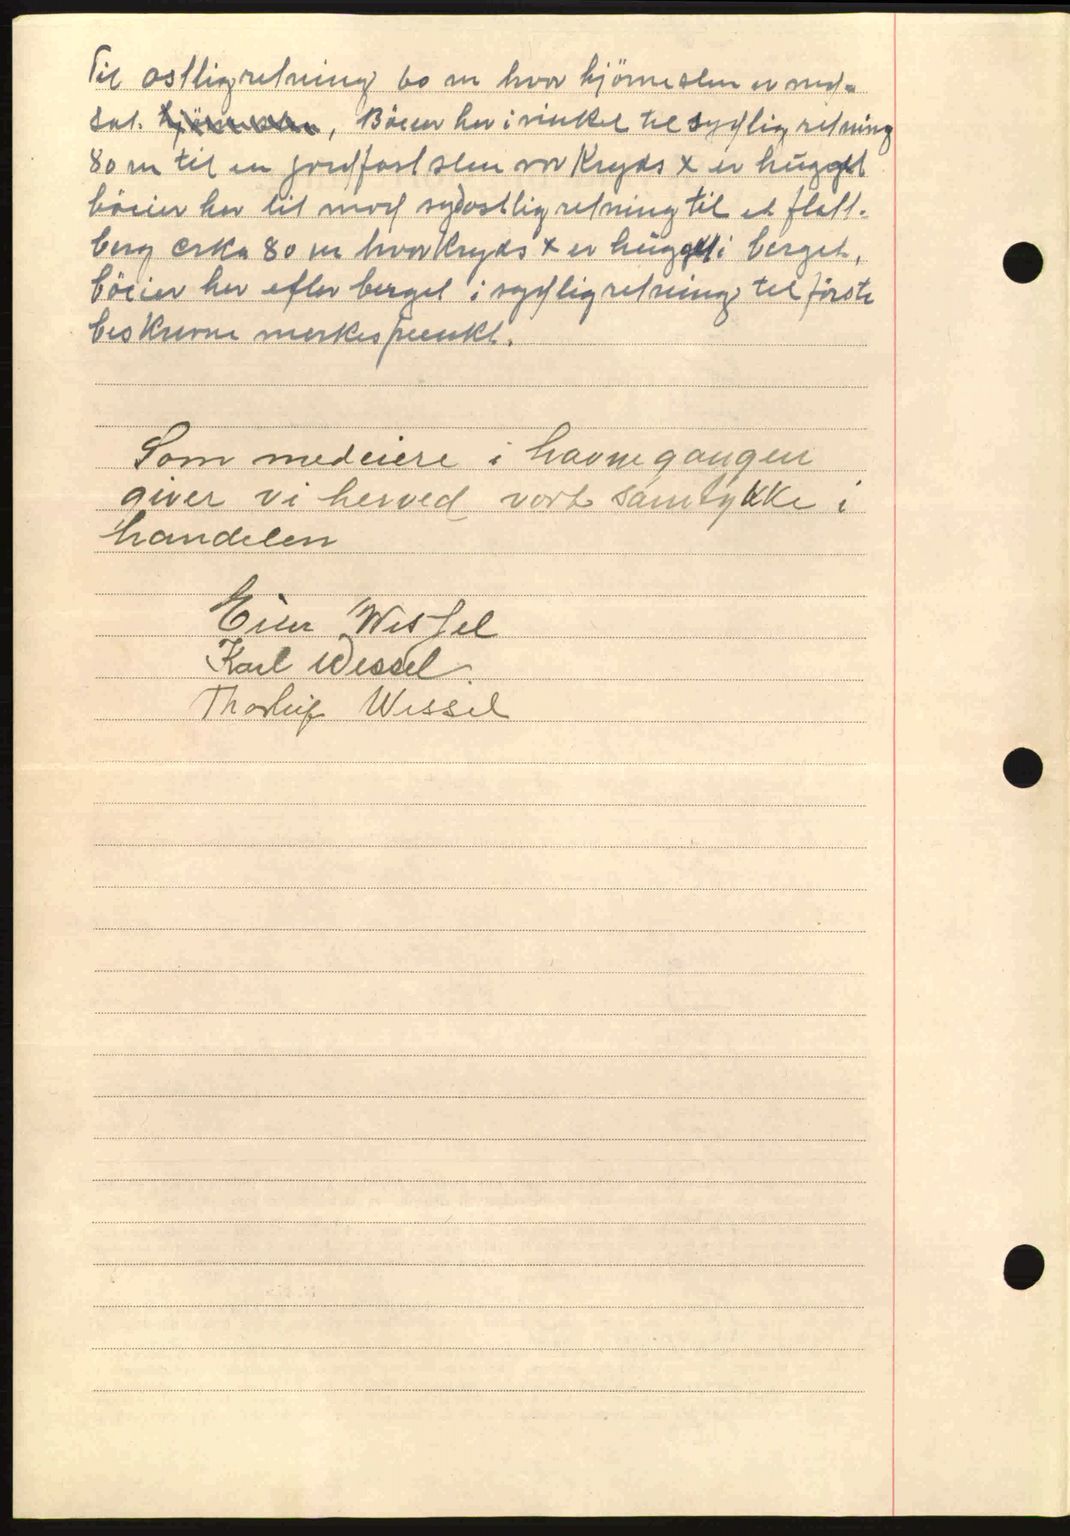 Til østlig retning 60 m hvor hjörnesten er ned-
sat. hjörnesten, Böeier her i vinkel til sydlig retning
80 m til en jordfast sten vor Kryds x er hugget
böeier her lit mod sydostlig retning til et flatt-
berg cirka 80 m hvor Kryds x er hugget i berget,
böeier her efter berget i sydlig retning til förste
beskrevne merkespunkt.
Som medeiere i havnegangen
giver vi herved vort samtykke i
handelen
Einar Wessel
Karl Wessel
Thorleif Wessel